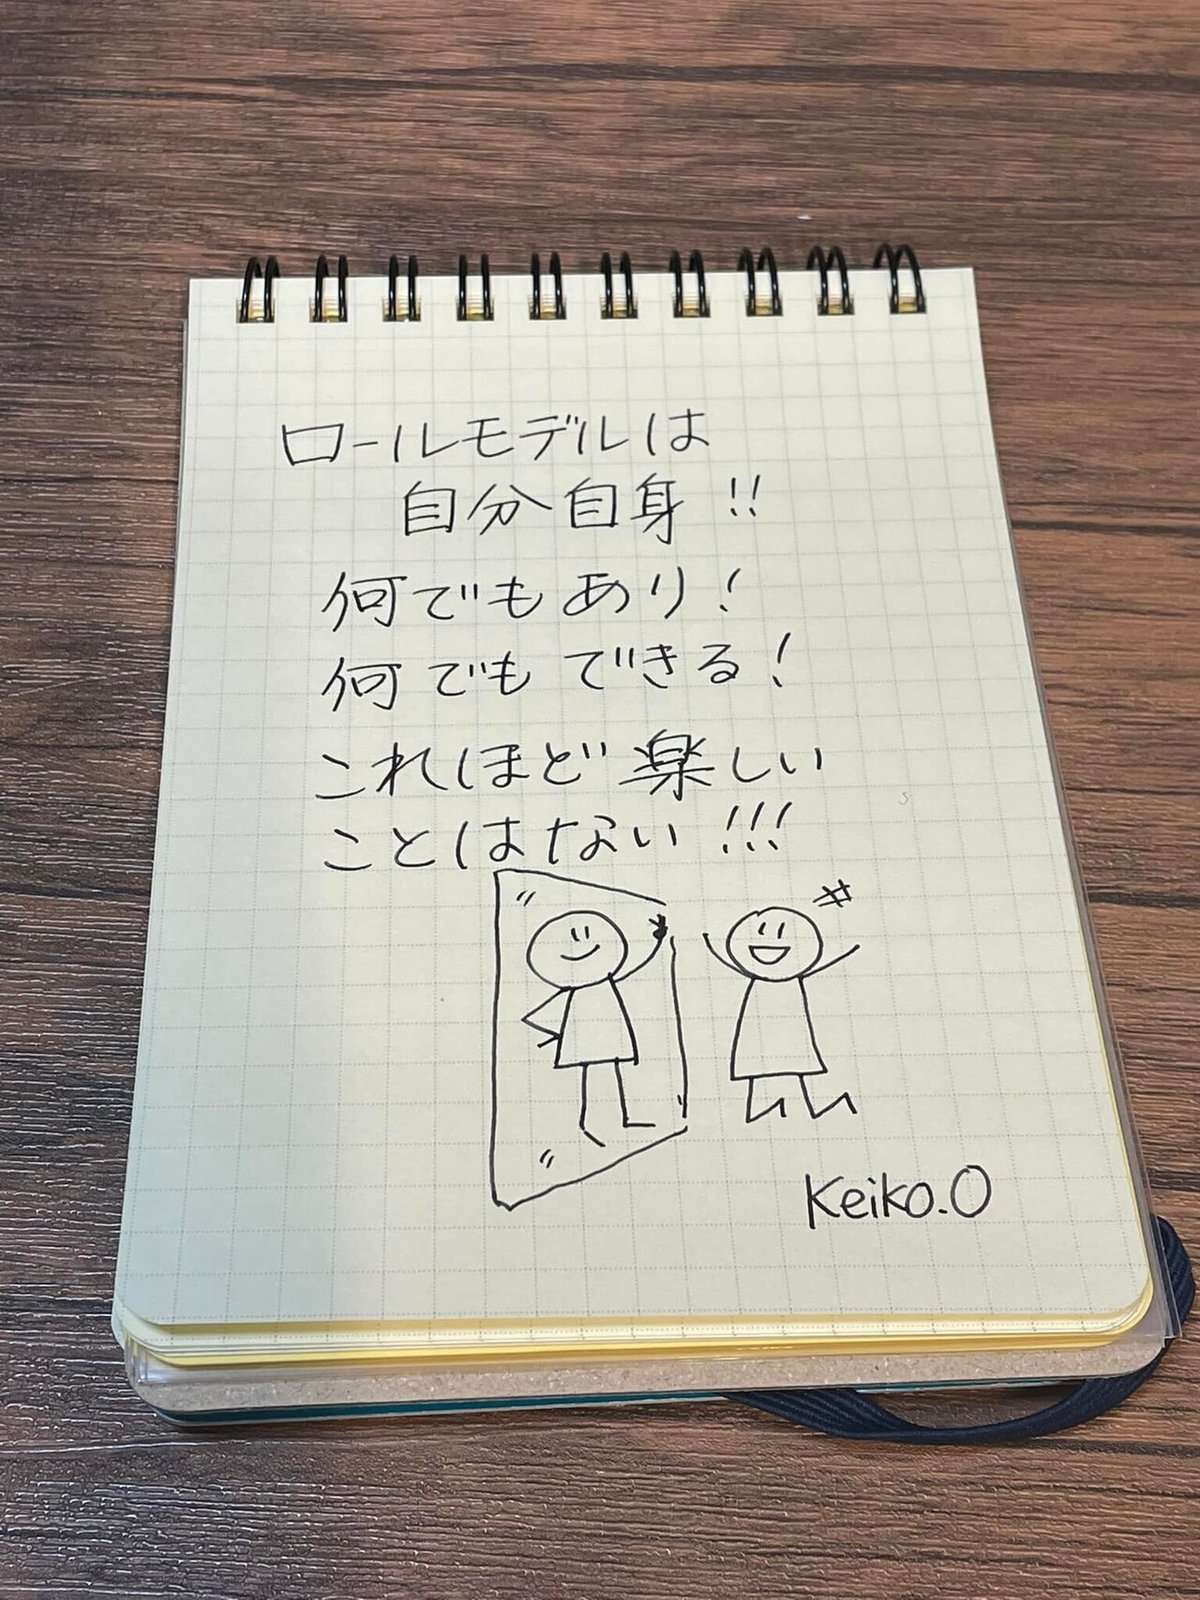 ロールモデルは
自分自身!!
何でもあり!
何でもできる!
これほど楽しい
ことはない!!!
Keiko.O